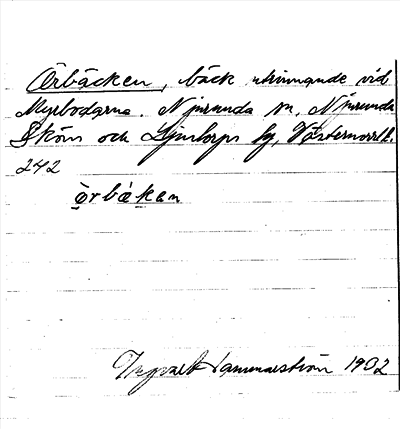 Örbäcken, bäck utrinnande vid
Myrbodarna. Njurunda sn, Njurunda
Sköns och Ljustorps tg, Västernorrl.
242
òrbäkαn
Ingvar Hammarström 1932